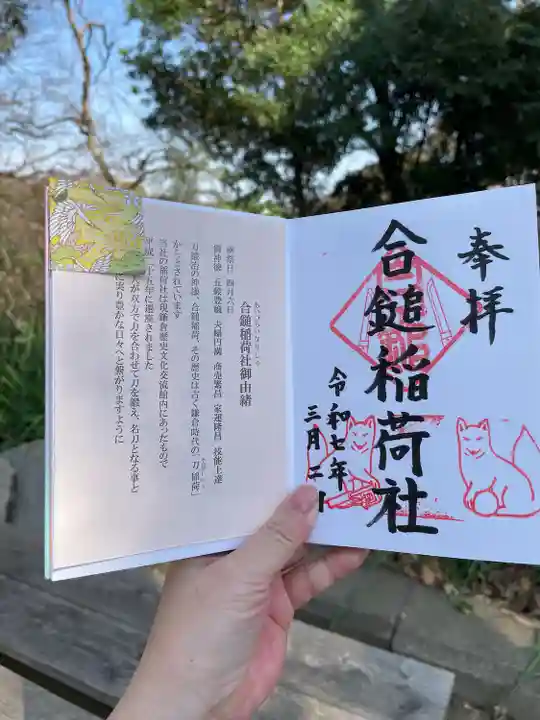 奉拝
合鎚稲荷社
令和七年
三月
あいづちいなりしゃ
合鎚稲荷社御由緒
四月六日
御神徳 五穀豊穣 夫婦円満 商売繁昌 家運隆昌 技能上達
刀鍛冶の神様、合鎚稲荷。その歴史は古く鎌倉時代の「刀稲荷」
かとされています
当社の稲荷社は現鎌倉歴史文化交流館内にあったもので
平成二十五年に遷座されました
が双方で力を合わせて刀を鍛え、名刀となる事と
に実り豊かな日々へと繋がりますように